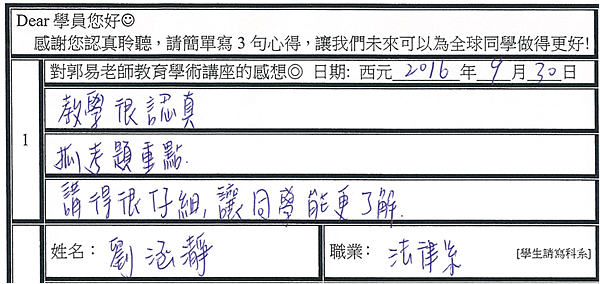 Dear 學員您好☺
感謝您認真聆聽，請簡單寫 3 句心得，讓我們未來可以為全球同學做得更好!
對郭易老師教育學術講座的感想◎ 日期: 西元 2016 年 9 月 30 日
1
教學很認真
抓考題重點.
講得很仔細,讓同學能更了解.
姓名： 劉涵瀞 職業： 法律系 [學生請寫科系]